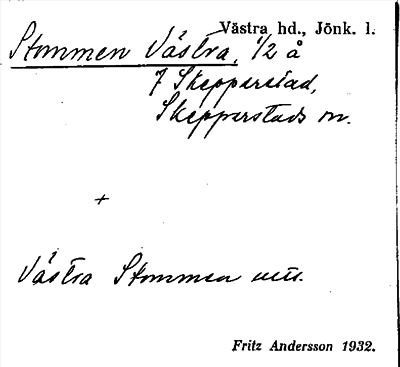 Västra hd., Jönk. l.
Stommen Västra, 1/2 å
7 Skepperstad,
Skepperstads sn.
+
Västra Stommen
Fritz Andersson 1932.